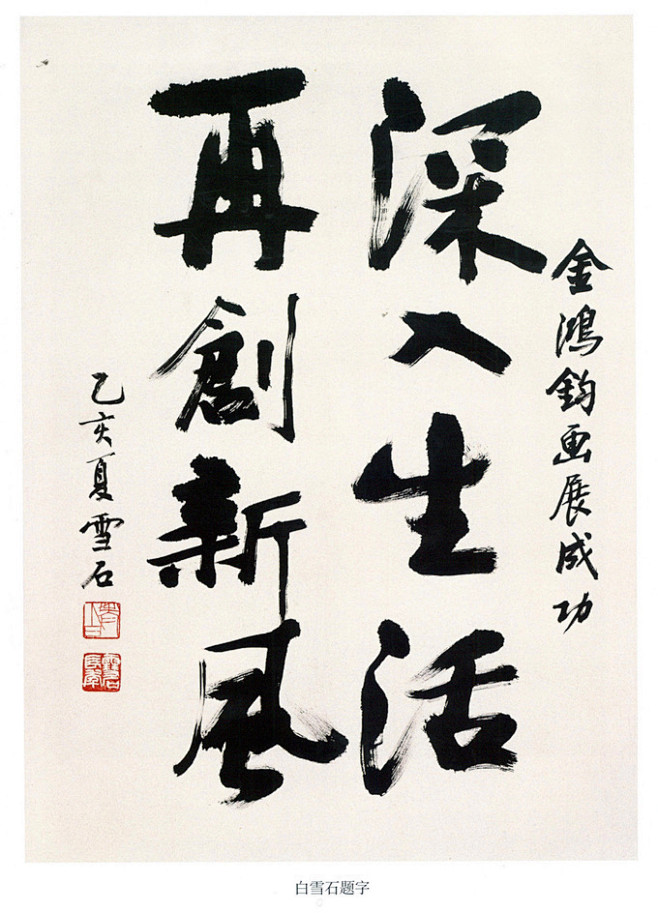 金鴻鈞画展成功
深入生活
再創新風
乙亥夏雪石
白雪石题字